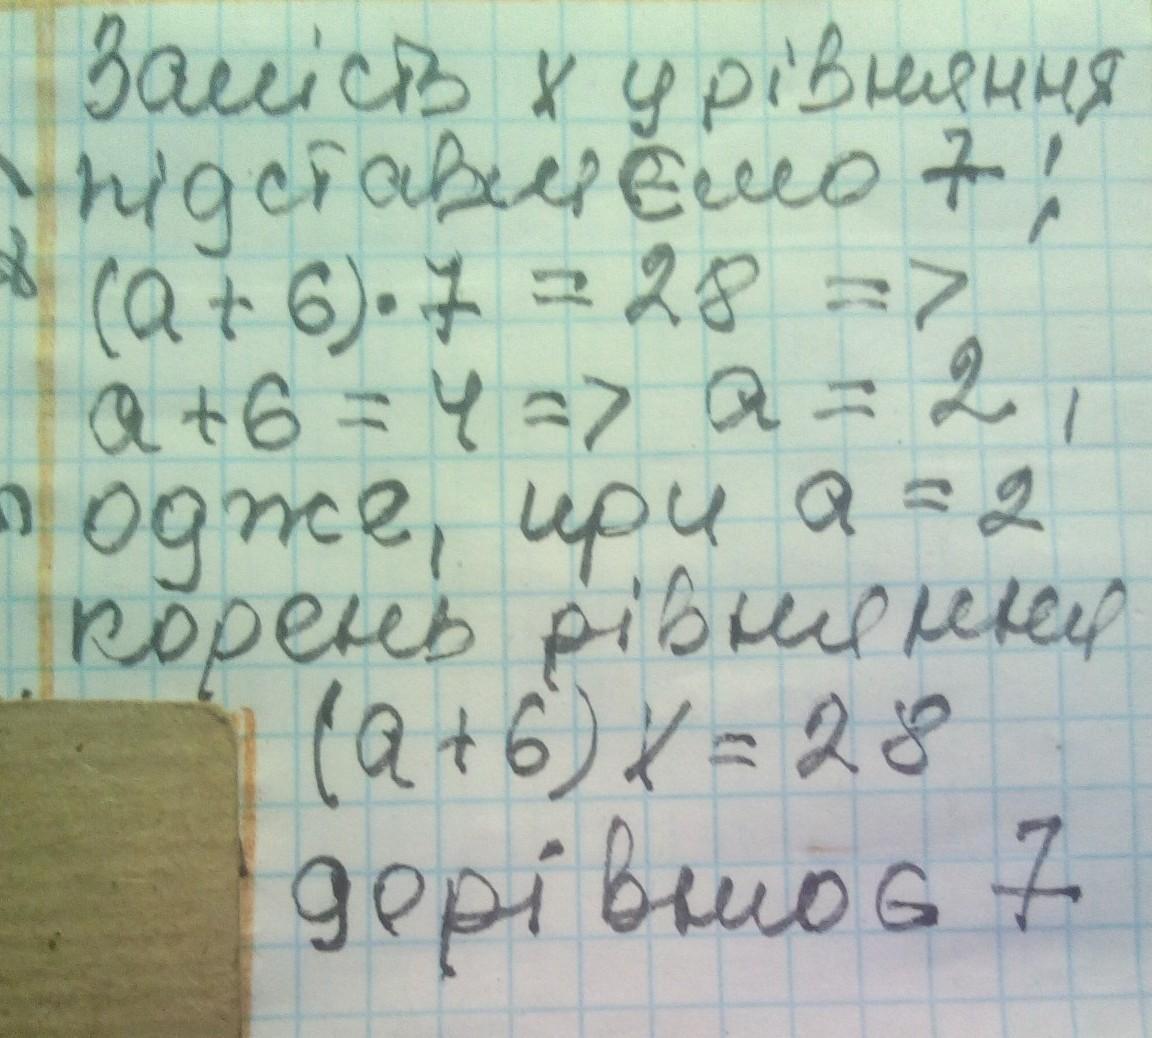 Замість x у рівняння
підставляємо 7;
(a + 6)·7 = 28 =>
a + 6 = 4 => a = 2,
одже, при a = 2
корень рівняння
(a + 6) x = 28
дорівнює 7